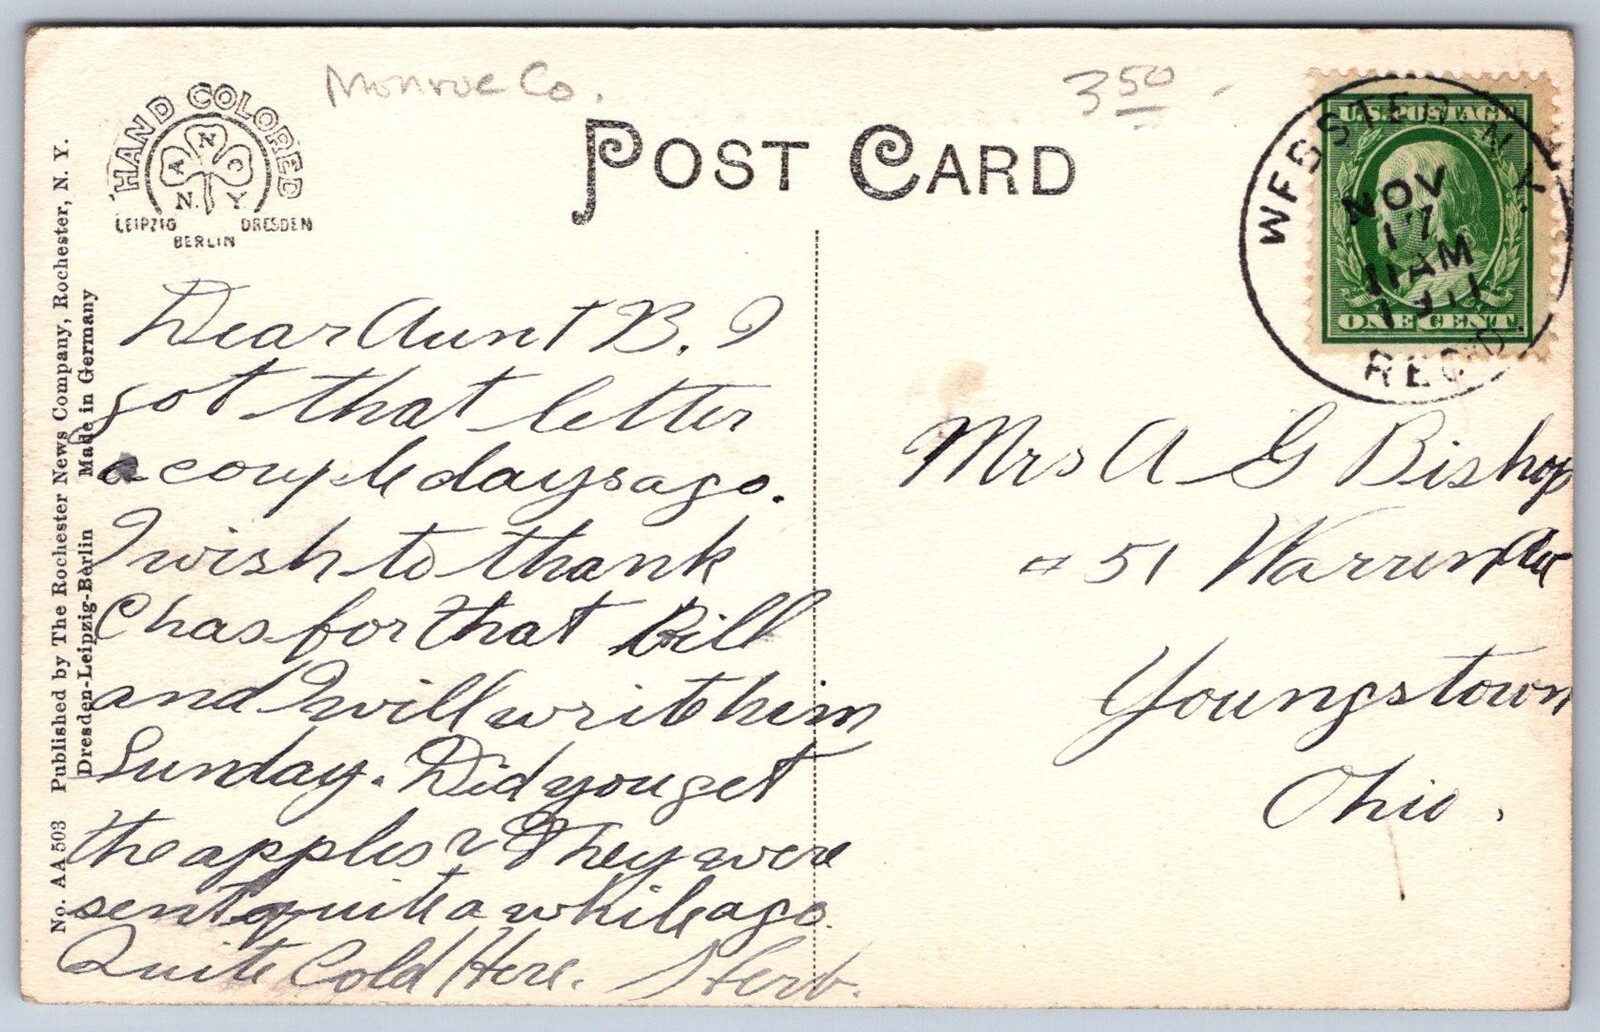 Monroe Co.
3 50
HAND COLORED
N
A C
N. Y
LEIPZIG DRESDEN
BERLIN
POST CARD
U.S. POSTAGE
ONE CENT
WEBSTER N.Y.
NOV
17
11 AM
1911
REC'D.
No. AA 503 Published by The Rochester News Company, Rochester, N. Y.
Dresden-Leipzig-Berlin Made in Germany
Dear Aunt B. I
got that letter
a couple days ago.
I wish to thank
Chas for that Bill
and I will write him
Sunday. Did you get
the apples? They were
sent quite a while ago.
Quite Cold Here. Herb.
Mrs A G Bishop
# 51 Warren Ave
Youngstown
Ohio.